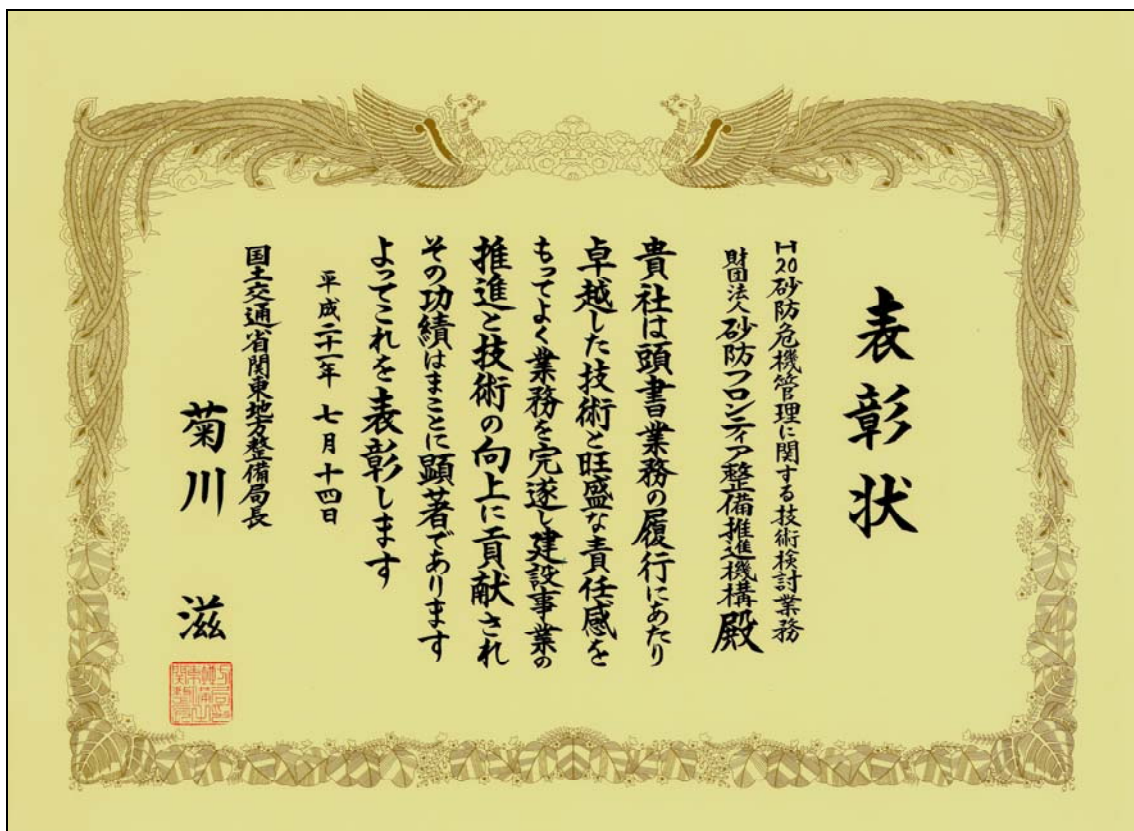 表彰状
H20砂防危機管理に関する技術検討業務
財団法人砂防フロンティア整備推進機構殿
貴社は頭書業務の履行にあたり
卓越した技術と旺盛な責任感を
もってよく業務を完遂し建設事業の
推進と技術の向上に貢献され
その功績はまことに顕著であります
よってこれを表彰します
平成二十一年七月十四日
国土交通省関東地方整備局長
菊川滋